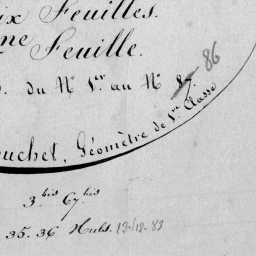 ix Feuilles.
me Feuille.
. du N° 1er au N° 87. 86
uchet, Géomètre de 1re Classe
3.bis 67bis
35. 36 Nubs. 13-12-83